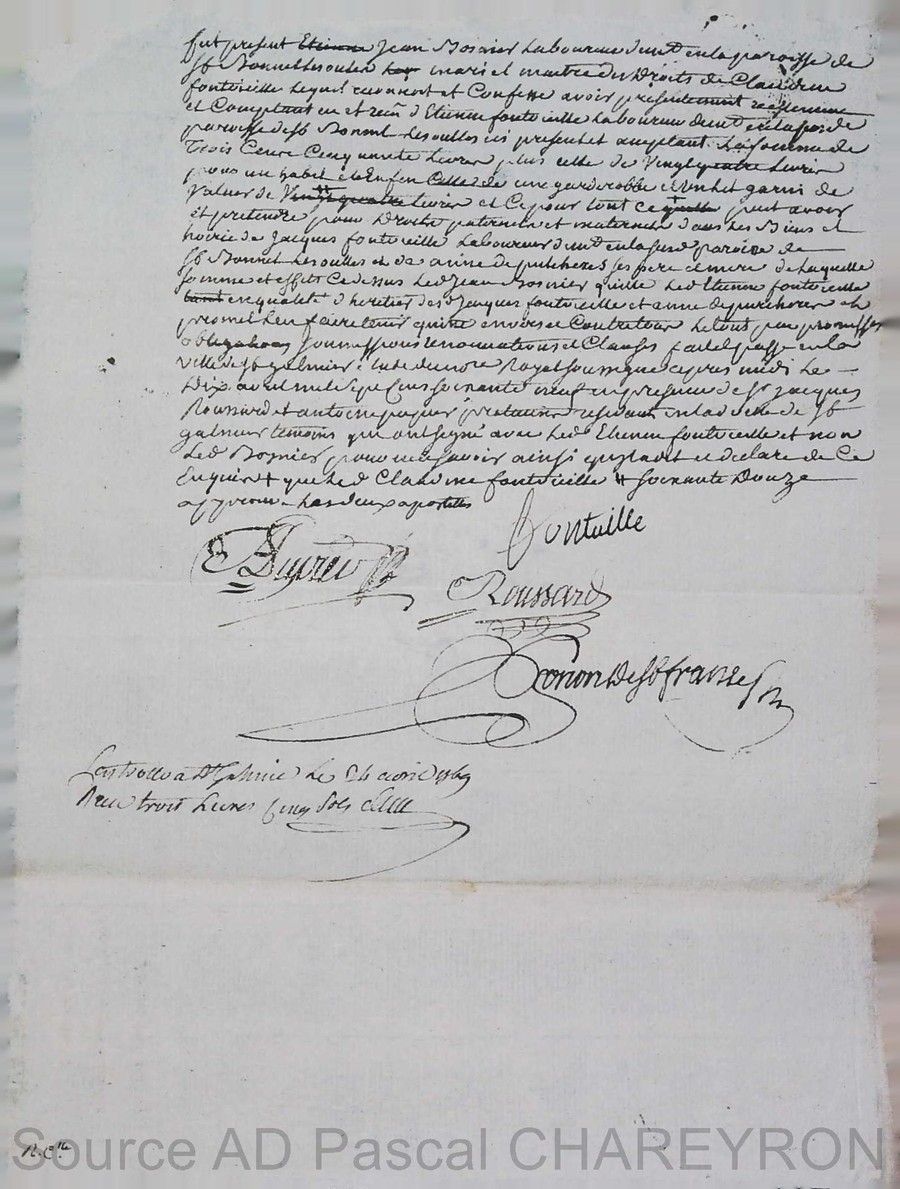 fut present Etienne Jean Bosnier Laboureur demt en la paroisse de
St Bonnet Lesoules mari et maitre des Droits de Claudine
fontvieille Lequel reconnoit et Confesse avoir présentement réellement
et Comptant eu et reçu d'Etienne fontvieille Laboureur demt en lad. pse de
paroisse de St Bonnet Lesoulles ici present et acceptant La somme de
Trois Cent Cinquante Livres plus celle de Vingt quatre Livres
pour un habit et Enfin Celle de une garderobbe et un lit garni de
Valeur de Vingt quatre Livres et Ce pour tout ce qu'elle peut avoir
et pretendre pour Droits paternels et maternels dans Les Biens et
hoirie de Jacques fontvieille Laboureur demt en la susd paroisse de
St Bonnet Lesoulles et de anne de puicherer ses pere et mere de Laquelle
somme et effets Cy dessus Led Jean Bosnier quitte Led Etienne fontvieille
tant en qualité d'heritier desd Jacques fontvieille et anne depuicherer et
promet L'en faire tenir quitte envers et Contre tous Le tout par promesses
obligations soumissions renonciations et Clauses fait et passé en la
ville de St galmier Etude du nore Royal soussigné apres midi Le
Dix avril mil sept Cens soixante neuf en presence de sr jacques
Roussard et antoine praticiens residants en la ville de St
galmier temoins qui ont signé avec Led Etienne fontvieille et non
Led Bosnier pour ne savoir ainsi qu'il a dit et declaré de Ce
Enquis + que Lad Claudine fontvieille # soixante Douze
approuvé Les deux apostilles
fontuille
Roussard
De St
Controllé à St Galmier Le 24 avril 1769
Reçu trois Livres Cinq Sols
R. Clle
Source AD Pascal CHAREYRON